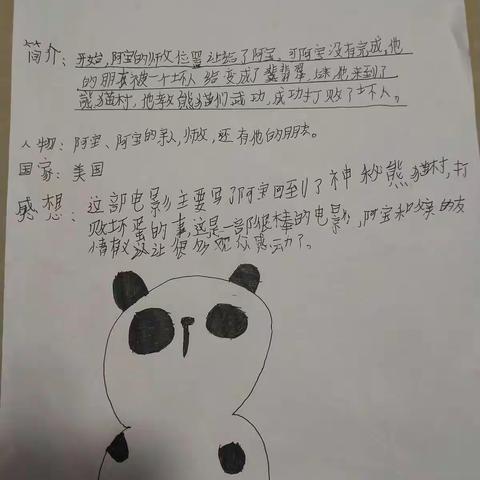 简介：开始，阿宝的师傅位置让给了阿宝，可阿宝没有完成，他
的朋友被一个坏人给变成了翡翠，他来到了
熊猫村，他教熊猫们武功，成功打败了坏人。
人物：阿宝、阿宝的亲人，师傅，还有他的朋友。
国家：美国
感想：这部电影主要写了阿宝回到了神秘熊猫村，打
败坏蛋的事，这是一部很棒的电影，阿宝和的友
情让很多观众感动了。